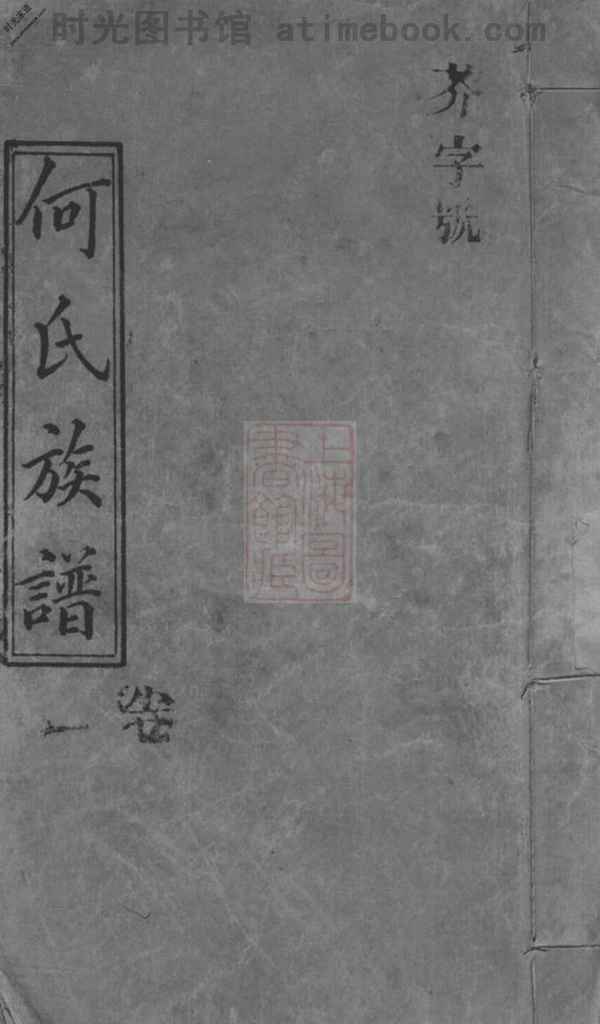 时光图书馆 atimebook.com
芥字號
何氏族譜
卷一
上海圖書館藏